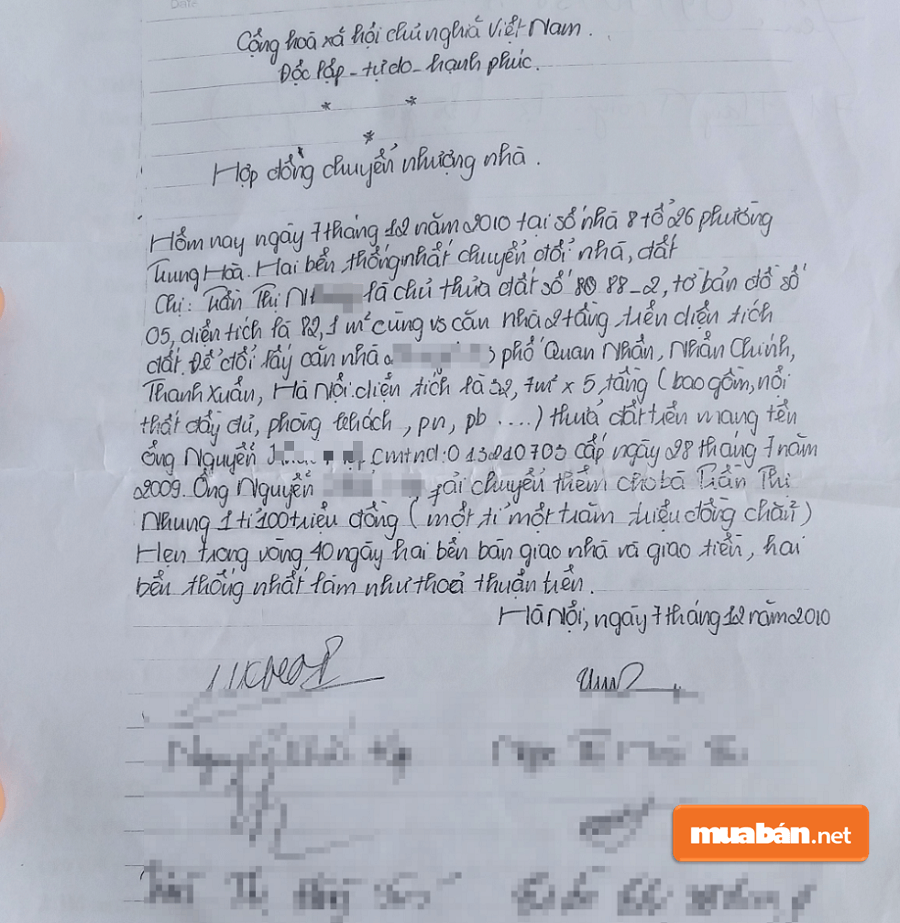 Date
Cộng hoà xã hội chủ nghĩa Việt Nam.
Độc lập - tự do - hạnh phúc.
* *
*
Hợp đồng chuyển nhượng nhà.
Hôm nay ngày 7 tháng 12 năm 2010 tại số nhà 8 tổ 26 phường
Trung Hoà. Hai bên thống nhất chuyển đổi nhà, đất
Chị: Trần Thị N là chủ thửa đất số 88-2, tờ bản đồ số
05, diện tích là 82,1 m² cùng vs căn nhà 2 tầng trên diện tích
đất. Để đổi lấy căn nhà phố Quan Nhân, Nhân Chính,
Thanh Xuân, Hà Nội: diện tích là 32,7m² x 5 tầng (bao gồm, nội
thất đầy đủ, phòng khách, pn, pb ....) thuả đất trên mang tên
ông Nguyễn cmtnd: 013210703 cấp ngày 28 tháng 7 năm
2009. Ông Nguyễn fải chuyển thêm cho bà Trần Thị
Nhung 1 tỉ 100 triệu đồng (một tỉ một trăm triệu đồng chẵn)
Hẹn trong vòng 40 ngày hai bên bàn giao nhà và giao tiền, hai
bên thống nhất làm như thoả thuận trên.
Hà Nội, ngày 7 tháng 12 năm 2010
muabán.net